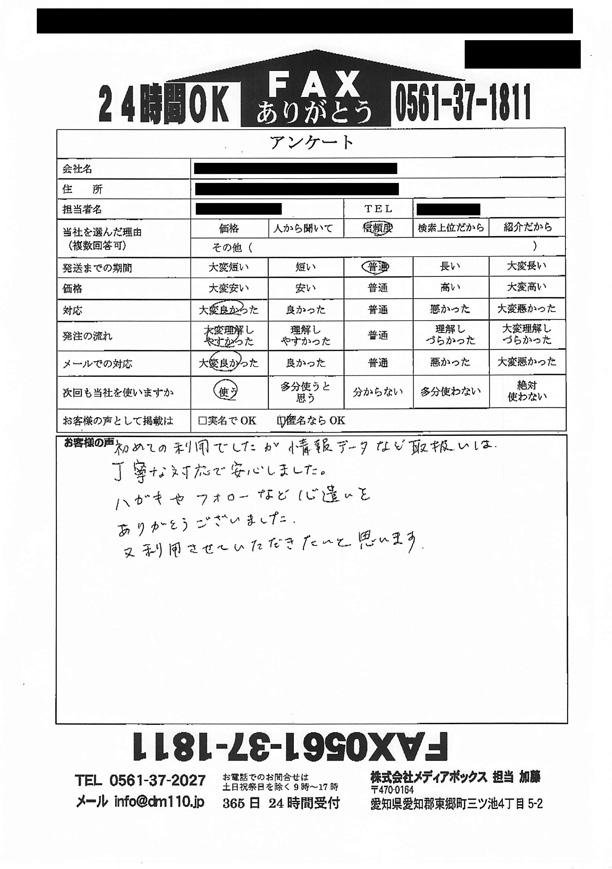 FAX
24時間OK ありがとう 0561-37-1811
アンケート
会社名
住　所
担当者名 TEL
当社を選んだ理由（複数回答可） 価格 人から聞いて 信頼度 検索上位だから 紹介だから
その他（ ）
発送までの期間 大変短い 短い 普通 長い 大変長い
価格 大変安い 安い 普通 高い 大変高い
対応 大変良かった 良かった 普通 悪かった 大変悪かった
発注の流れ 大変理解しやすかった 理解しやすかった 普通 理解しづらかった 大変理解しづらかった
メールでの対応 大変良かった 良かった 普通 悪かった 大変悪かった
次回も当社を使いますか 使う 多分使うと思う 分からない 多分使わない 絶対使わない
お客様の声として掲載は □実名でOK □匿名ならOK
お客様の声
初めての利用でしたが 情報データなど取扱いは
丁寧な対応で安心しました。
ハガキやフォローなど心遣いを
ありがとうございました.
又利用させていただきたいと思います.
FAX0561-37-1811
TEL 0561-37-2027 お電話でのお問合せは 株式会社メディアボックス 担当 加藤
土日祝祭日を除く9時～17時 〒470-0164
メール info@dm110.jp 365日 24時間受付 愛知県愛知郡東郷町三ツ池4丁目5-2